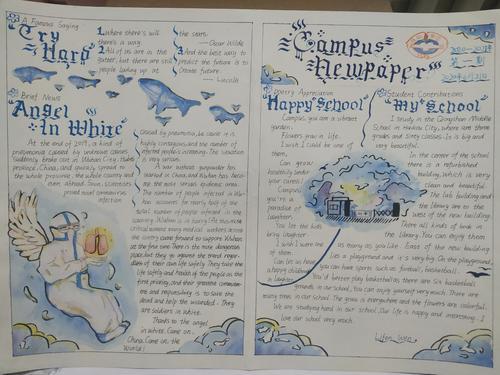 A Famous Saying
Cry
Hard
1. Where there's will
there's a way.
2. All of us are in the
gutter, but there are still
people looking up at
the stars.
—Oscar Wilde
3. And the best way to
predict the future is to
create future.
—Lincoln
Brief News
Angel
In White
At the end of 2019, a kind of
pneumonia caused by unknown causes
suddenly broke out in Wuhan City, Hubei
province, China, and quickly spread to
the whole province, the whole country and
even abroad. Soon, scientists
proved novel coronavirus
infection
Caused by pneumonia, because it is
highly contagious, and the number of
infected people is increasing. The situation
is very urgent.
A war without gunpowder has
started in China, and Wuhan has become
the most serious epidemic area.
The number of people infected in Wuhan
accounts for nearly half of the
total number of people infected in the
country. Wuhan is in hurry! The most
critical moment many medical workers across
the country came forward to support Wuhan
at the first time. There is the most dangerous
place, but they go against the trend regardless
of their own life safety. They take the
life safety and health of the people as the
first priority, and their greatest commitment
and responsibility is to save the
dead and help the wounded. They
are soldiers in white.
Thanks to the angel
in white. Come on,
China. Come on the
World!
Campus
Newpaper
2020—2021
第二期
Poetry Appreciation
Happy School
Campus, you are a vibrant
garden.
Flowers grow in life.
I wish I could be one of
them,
Can grow
heartily under
your care!
Campus,
you're a
paradise of
laughter.
You let the kids
bring laughter
I wish I were one
of them,
Can let us have
a happy childhood
in laughter
Student Contributions
"My School"
I study in the Qingshan Middle
School in Hukou City, where are three
grades and sixty classes. Is is big and
very beautiful.
In the center of the school
there is a refurbished
building, which is very
clean and beautiful.
The lab building and
the library are to the
west of the new building
There all kinds of book in
the library. You can enjoy them
as many as you like. East of the new building
lies a playground and it's very big. On the playground,
you can have sports such as football, basketball.
You'd better play basketball as there are six basketball
grounds in our school. You can enjoy yourself very much. There are
many trees in our School. The grass is evergreen and the flowers are colorful.
We are studying hard in our school. Our life is happy and interesting. I
love our school very much.